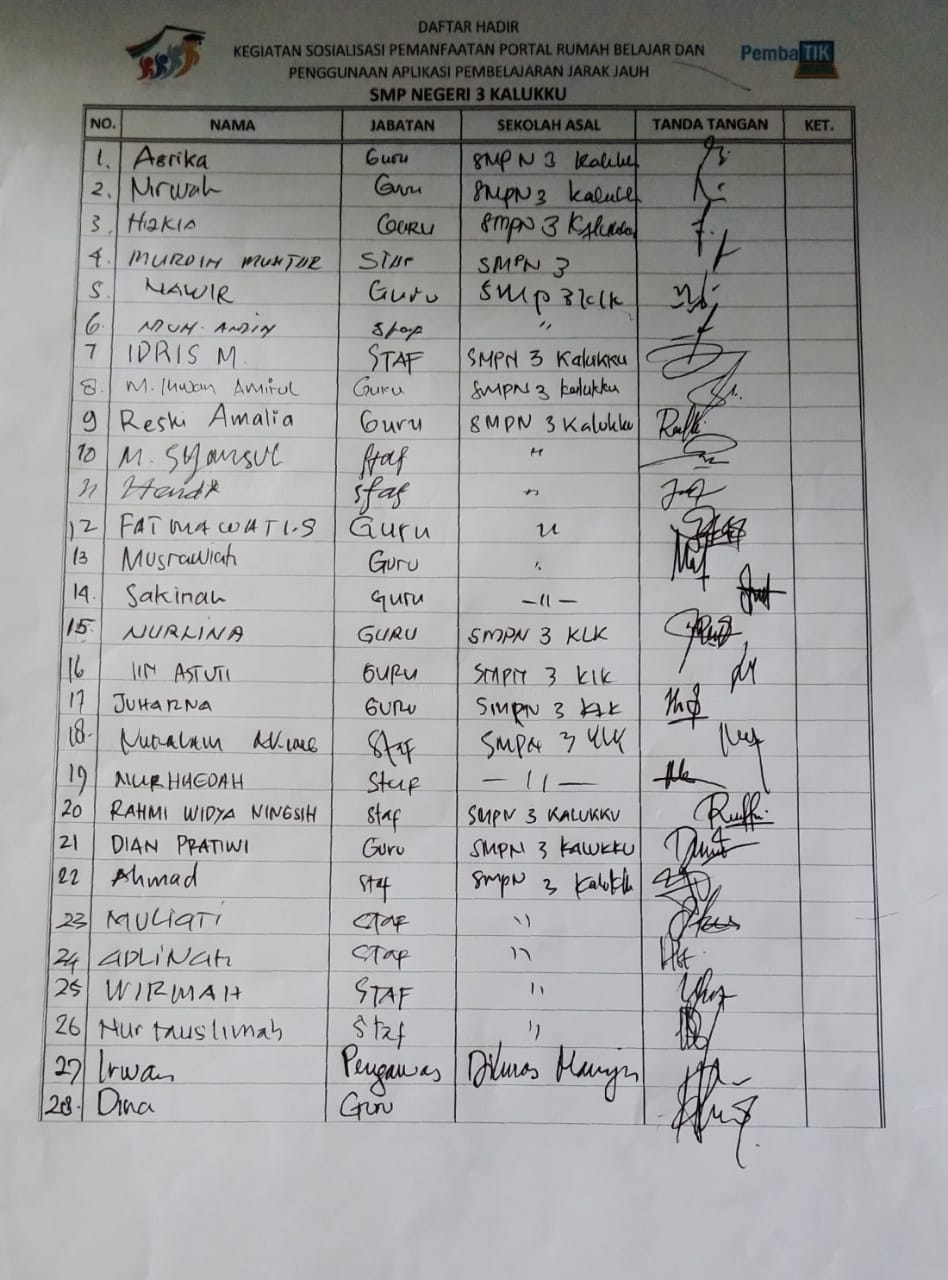 DAFTAR HADIR
KEGIATAN SOSIALISASI PEMANFAATAN PORTAL RUMAH BELAJAR DAN
PENGGUNAAN APLIKASI PEMBELAJARAN JARAK JAUH
PembaTIK
SMP NEGERI 3 KALUKKU
NO. NAMA JABATAN SEKOLAH ASAL TANDA TANGAN KET.
1. Asrika Guru SMPN 3
2. Nirwah Guru SMPN 3
3. HIZKIA GURU SMPN 3
4. MURDIN MUHTAR Staf SMPN 3
5. MAWIR Guru SMP 3 klk
6. MUH. AMIN Staf "
7 IDRIS M. STAF SMPN 3 Kalukku
8. M. Amirul Guru SMPN 3 kalukku
9 Reski Amalia Guru SMPN 3 Kalukku
10 M. Syamsul Staf "
11 Staf "
12 FATMAWATI.S Guru "
13 Musrawiah Guru "
14. Sakinah Guru -11-
15. NURLINA GURU SMPN 3 KLK
16 IIN ASTUTI GURU SMPN 3 KLK
17 JUHARNA GURU SMPN 3 KLK
18. Nuralam Staf SMPN 3 KLK
19 NURHAEDAH Staf — 11 —
20 RAHMI WIDYA NINGSIH Staf SMPN 3 KALUKKU
21 DIAN PRATIWI Guru SMPN 3 KALUKKU
22 Ahmad Staf SMPN 3
23 MULIATI STAF "
24 ADLINAH STAF "
25 WIRMAH STAF "
26 Nur Muslimah Staf "
27 Irwan Pengawas
28. Dina Guru